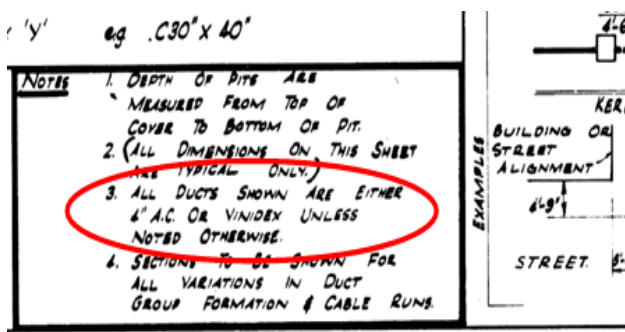 'Y' eg .C30" x 40"
NOTES 1. DEPTH OF PITS ARE
MEASURED FROM TOP OF
COVER TO BOTTOM OF PIT.
2. (ALL DIMENSIONS ON THIS SHEET
ARE TYPICAL ONLY.)
3. ALL DUCTS SHOWN ARE EITHER
4" A.C. OR VINIDEX UNLESS
NOTED OTHERWISE.
4. SECTIONS TO BE SHOWN FOR
ALL VARIATIONS IN DUCT
GROUP FORMATION & CABLE RUNS.
EXAMPLES
4'-6
KER
BUILDING OR
STREET
ALIGNMENT
4'-9"
STREET.